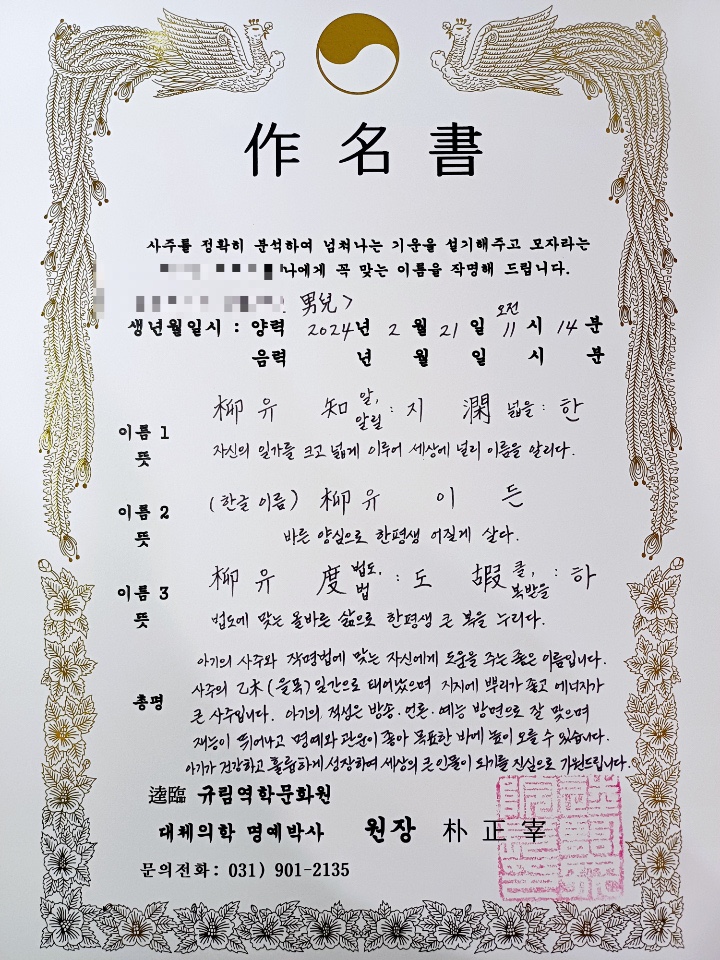 作名書
사주를 정확히 분석하여 넘쳐나는 기운을 설기해주고 모자라는
나에게 꼭 맞는 이름을 작명해 드립니다.
男兒>
오전
생년월일시 : 양력 2024년 2월 21일 11시 14분
음력 년 월 일 시 분
이름 1 柳 유 知 알, 알릴 : 지 澖 넓을 : 한
뜻 자신의 일가를 크고 넓게 이루어 세상에 널리 이름을 알리다.
이름 2 (한글 이름) 柳 유 이 든
뜻 바른 양심으로 한평생 어질게 살다.
이름 3 柳 유 度 법도, 법 : 도 嘏 클, 복받을 : 하
뜻 법도에 맞는 올바른 삶으로 한평생 큰 복을 누리다.
아기의 사주와 작명법에 맞는 자신에게 도움을 주는 좋은 이름입니다.
사주의 乙木(을목) 일간으로 태어났으며 지지에 뿌리가 좋고 에너지가
총평 큰 사주입니다. 아기의 적성은 방송·언론·예능 방면으로 잘 맞으며
재능이 뛰어나고 명예와 관운이 좋아 목표한 바에 높이 오를 수 있습니다.
아기가 건강하고 훌륭하게 성장하여 세상의 큰 인물이 되기를 진심으로 기원드립니다.
逵臨 규림역학문화원
대체의학 명예박사 원장 朴正宰
문의전화: 031) 901-2135